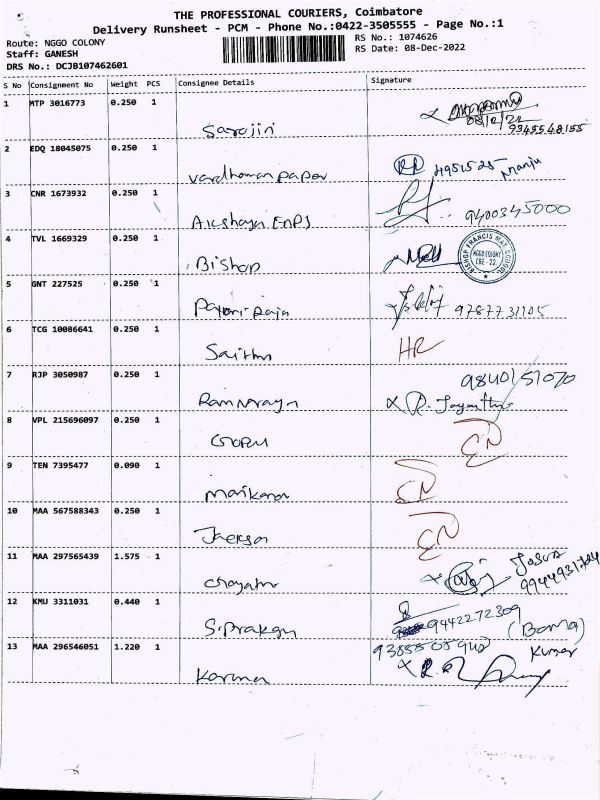 THE PROFESSIONAL COURIERS, Coimbatore
Delivery Runsheet - PCM - Phone No.:0422-3505555 - Page No.:1
Route: NGGO COLONY
Staff: GANESH
DRS No.: DCJB107462601
RS No.: 1074626
RS Date: 08-Dec-2022
S No Consignment No Weight PCS Consignee Details Signature
1 MTP 3016773 0.250 1
Sarojini 08/12/22
9345548155
2 EDQ 18045075 0.250 1
Vardhaman paper 4951525 Manju
3 CNR 1673932 0.250 1
Akshaya Enps 9400345000
4 TVL 1669329 0.250 1
Bishop
BISHOP FRANCIS MAT. SCHOOL
NGGO COLONY
CBE - 22
5 GNT 227525 0.250 1
9787731105
6 TCG 10086641 0.250 1
HR
7 RJP 3050987 0.250 1
9840151070
R. Jayanthi
8 VPL 215696097 0.250 1
EN
9 TEN 7395477 0.090 1
EN
10 MAA 567588343 0.250 1
Jackson EN
11 MAA 297565439 1.575 1
12 KMU 3311031 0.440 1
S. Prakash 9442272309
13 MAA 296546051 1.220 1
Kumar